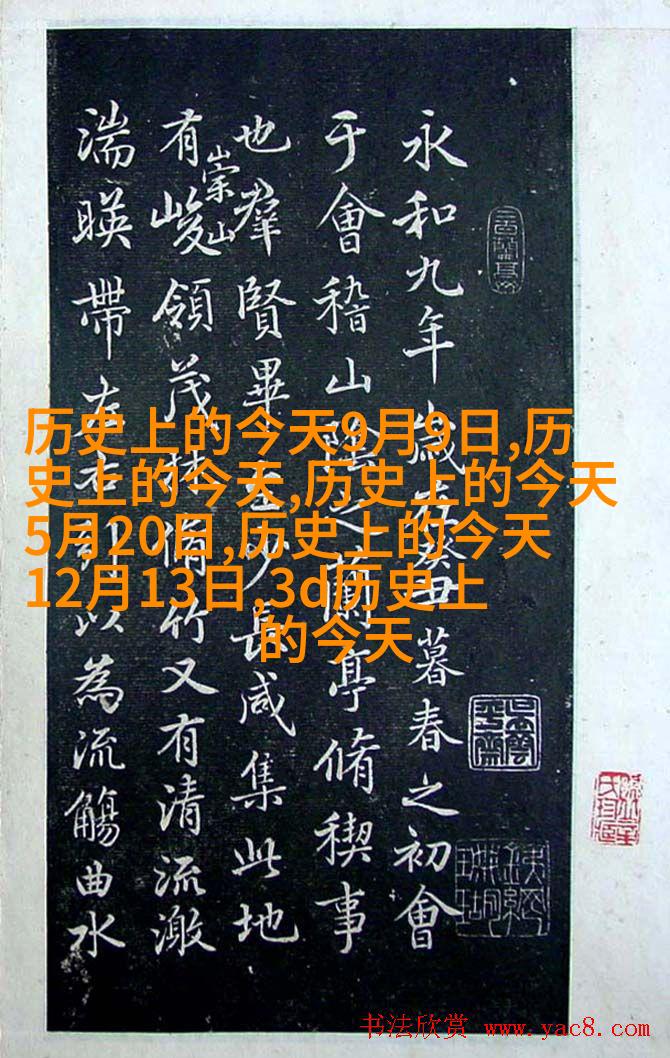 永和九年歲在癸丑暮春之初會
于會稽山陰之蘭亭脩稧事
也羣賢畢至少長咸集此地
有崇山峻領茂林脩竹又有清流激
湍暎帶左右引以為流觴曲水
历史上的今天9月9日,历
史上的今天,历史上的今天
5月20日,历史上的今天
12月13日,3d历史上
的今天
书法欣赏 www.yac8.com